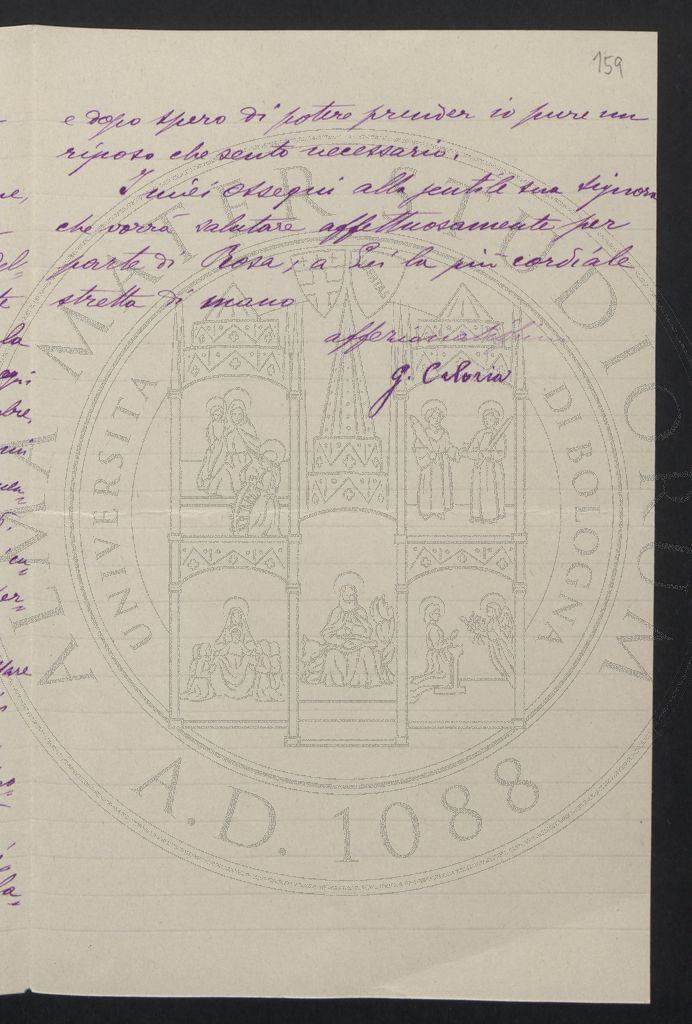 159
e dopo spero di potere prender io pure un
riposo che sento necessario.
I miei ossequi alla gentile sua signora
che vorrà salutare affettuosamente per
parte di Rosa; a Lei la più cordiale
stretta di mano
affezionatissimo
G. Celoria
ALMA MATER STUDIORUM
UNIVERSITA DI BOLOGNA
A.D. 1088